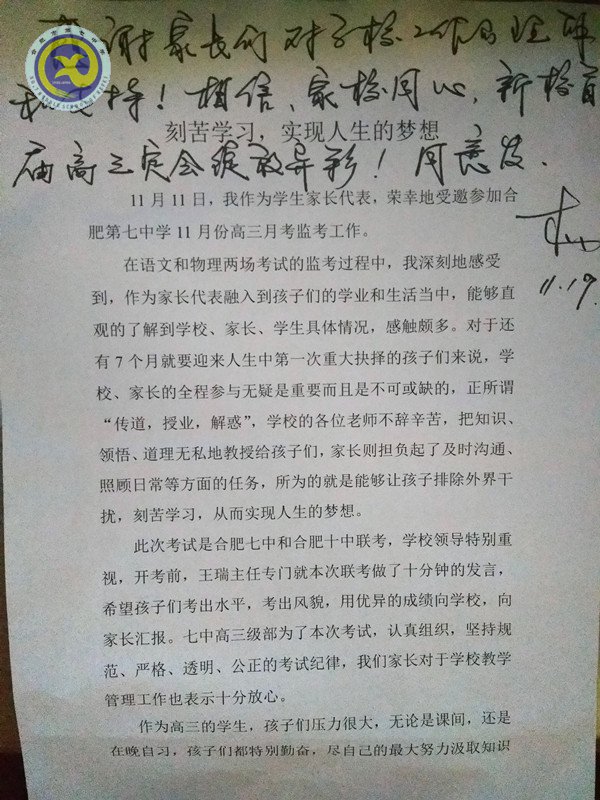 感谢家长们对学校工作的理解
和支持！相信，家校同心，新校首
刻苦学习，实现人生的梦想
届高三定会绽放异彩！同意发．
11.19.
11月11日，我作为学生家长代表，荣幸地受邀参加合
肥第七中学11月份高三月考监考工作。
在语文和物理两场考试的监考过程中，我深刻地感受
到，作为家长代表融入到孩子们的学业和生活当中，能够直
观的了解到学校、家长、学生具体情况，感触颇多。对于还
有7个月就要迎来人生中第一次重大抉择的孩子们来说，学
校、家长的全程参与无疑是重要而且是不可或缺的，正所谓
“传道，授业，解惑”，学校的各位老师不辞辛苦，把知识、
领悟、道理无私地教授给孩子们，家长则担负起了及时沟通、
照顾日常等方面的任务，所为的就是能够让孩子排除外界干
扰，刻苦学习，从而实现人生的梦想。
此次考试是合肥七中和合肥十中联考，学校领导特别重
视，开考前，王瑞主任专门就本次联考做了十分钟的发言，
希望孩子们考出水平，考出风貌，用优异的成绩向学校，向
家长汇报。七中高三级部为了本次考试，认真组织，坚持规
范、严格、透明、公正的考试纪律，我们家长对于学校教学
管理工作也表示十分放心。
作为高三的学生，孩子们压力很大，无论是课间，还是
在晚自习，孩子们都特别勤奋，尽自己的最大努力汲取知识